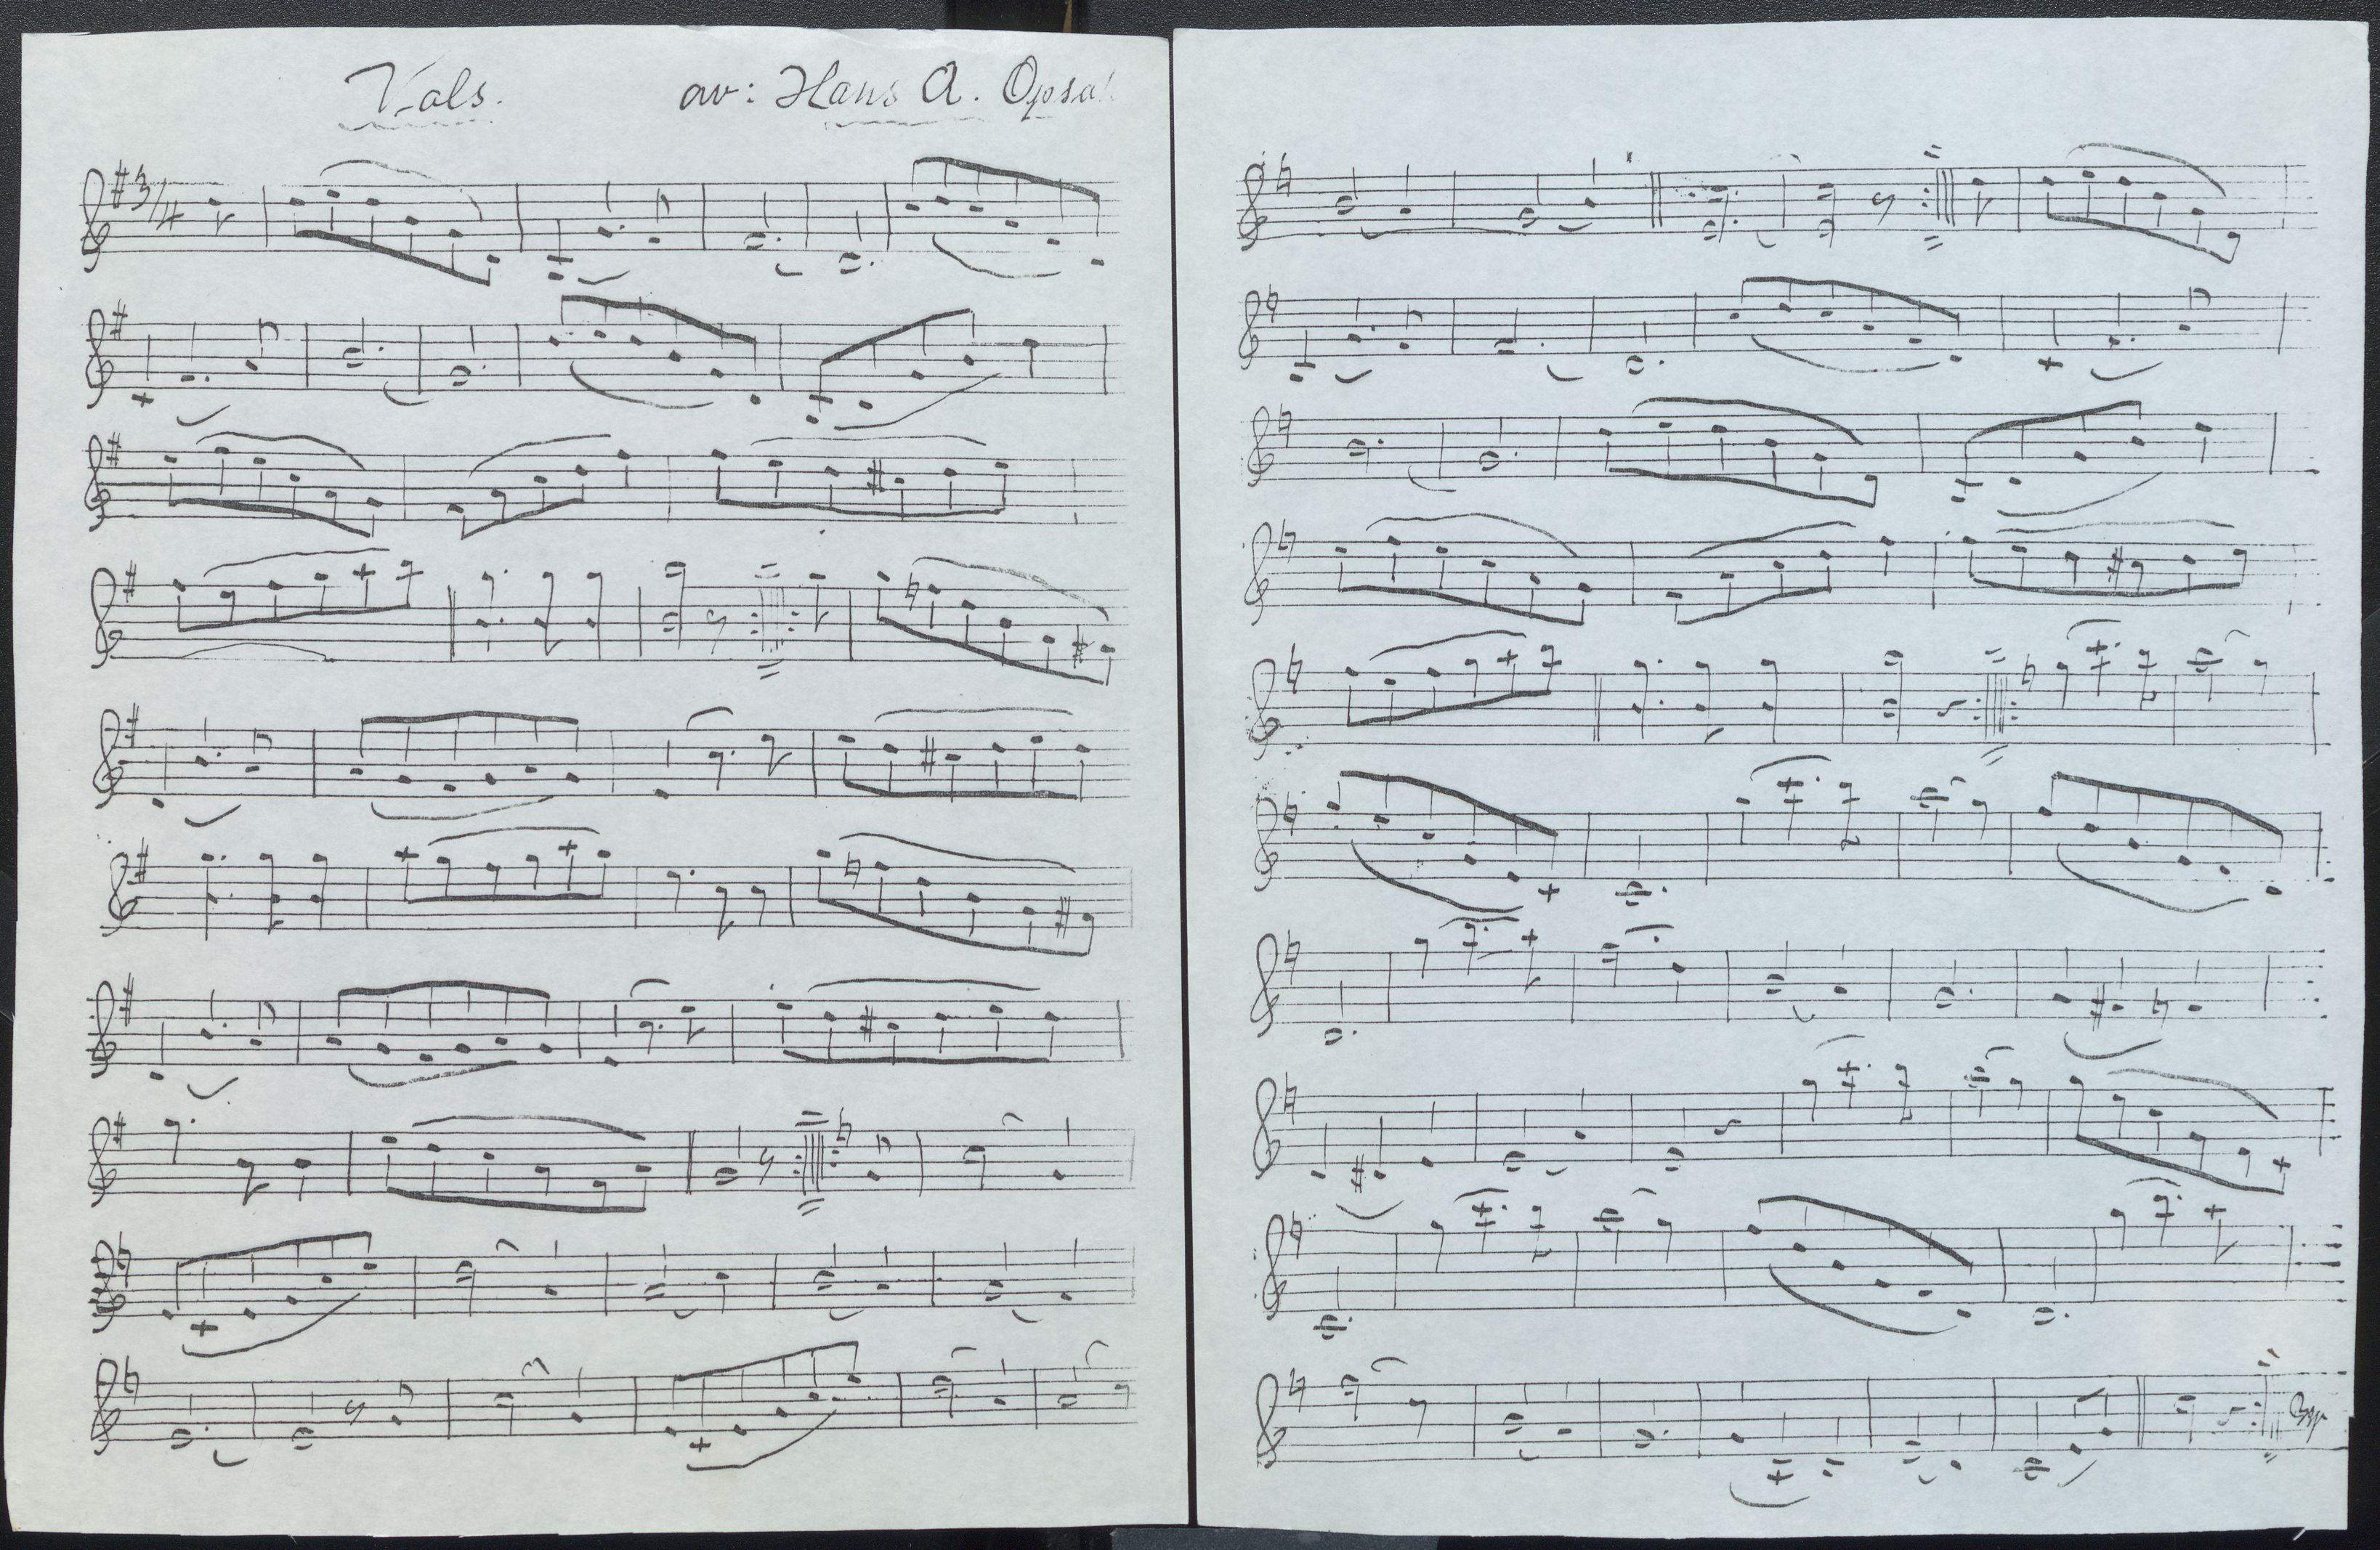 Vals. av: Hans A. Opsal
3/4